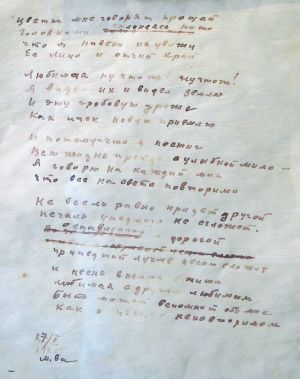 Цветы мне говорят прощай
Головками склоняясь ниже
Что я навеки не увижу
Ее лицо и отчий край
Любимая ну что ж ну что ж!
Я видел их и видел землю
И эту гробовую дрожь
Как ласку новую приемлю
И потому что я постиг
Всю жизнь пройдя с улыбкой мимо –
Я говорю на каждый миг
Что все на свете повторимо
Не все ль равно придет другой
Печаль ушедшего не сгложет
Оставленной и дорогой
Пришедший лучше песню сложит
И песне внемля в тиши
Любимая с другим любимым
Быть может вспомнит обо мне
Как о цветке неповторимом